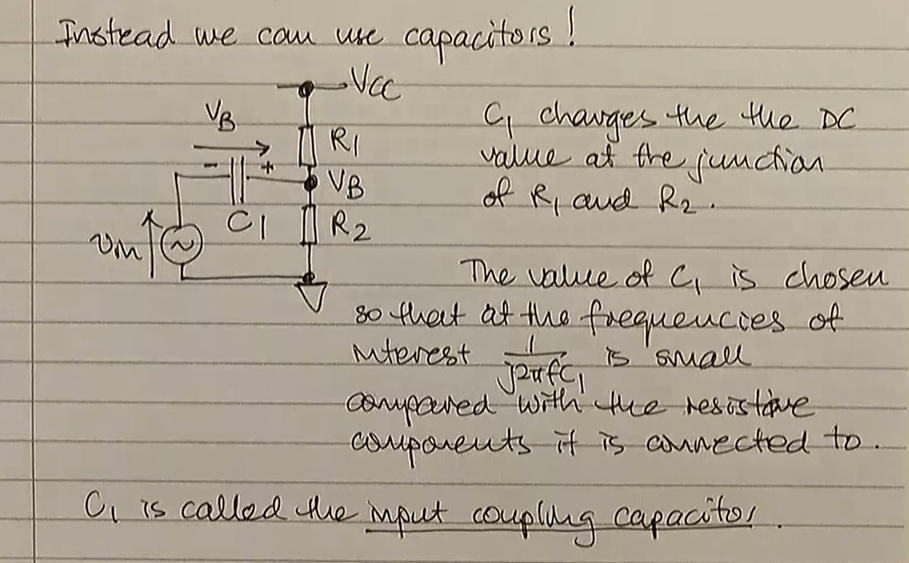 Instead we can use capacitors!
VCC
VB
R1
- +
VB
C1
R2
vin
~
C1 changes the the DC
value at the junction
of R1 and R2.
The value of C1 is chosen
so that at the frequencies of
interest 1/j2πfC1 is small
compared with the resistive
components it is connected to.
C1 is called the input coupling capacitor.